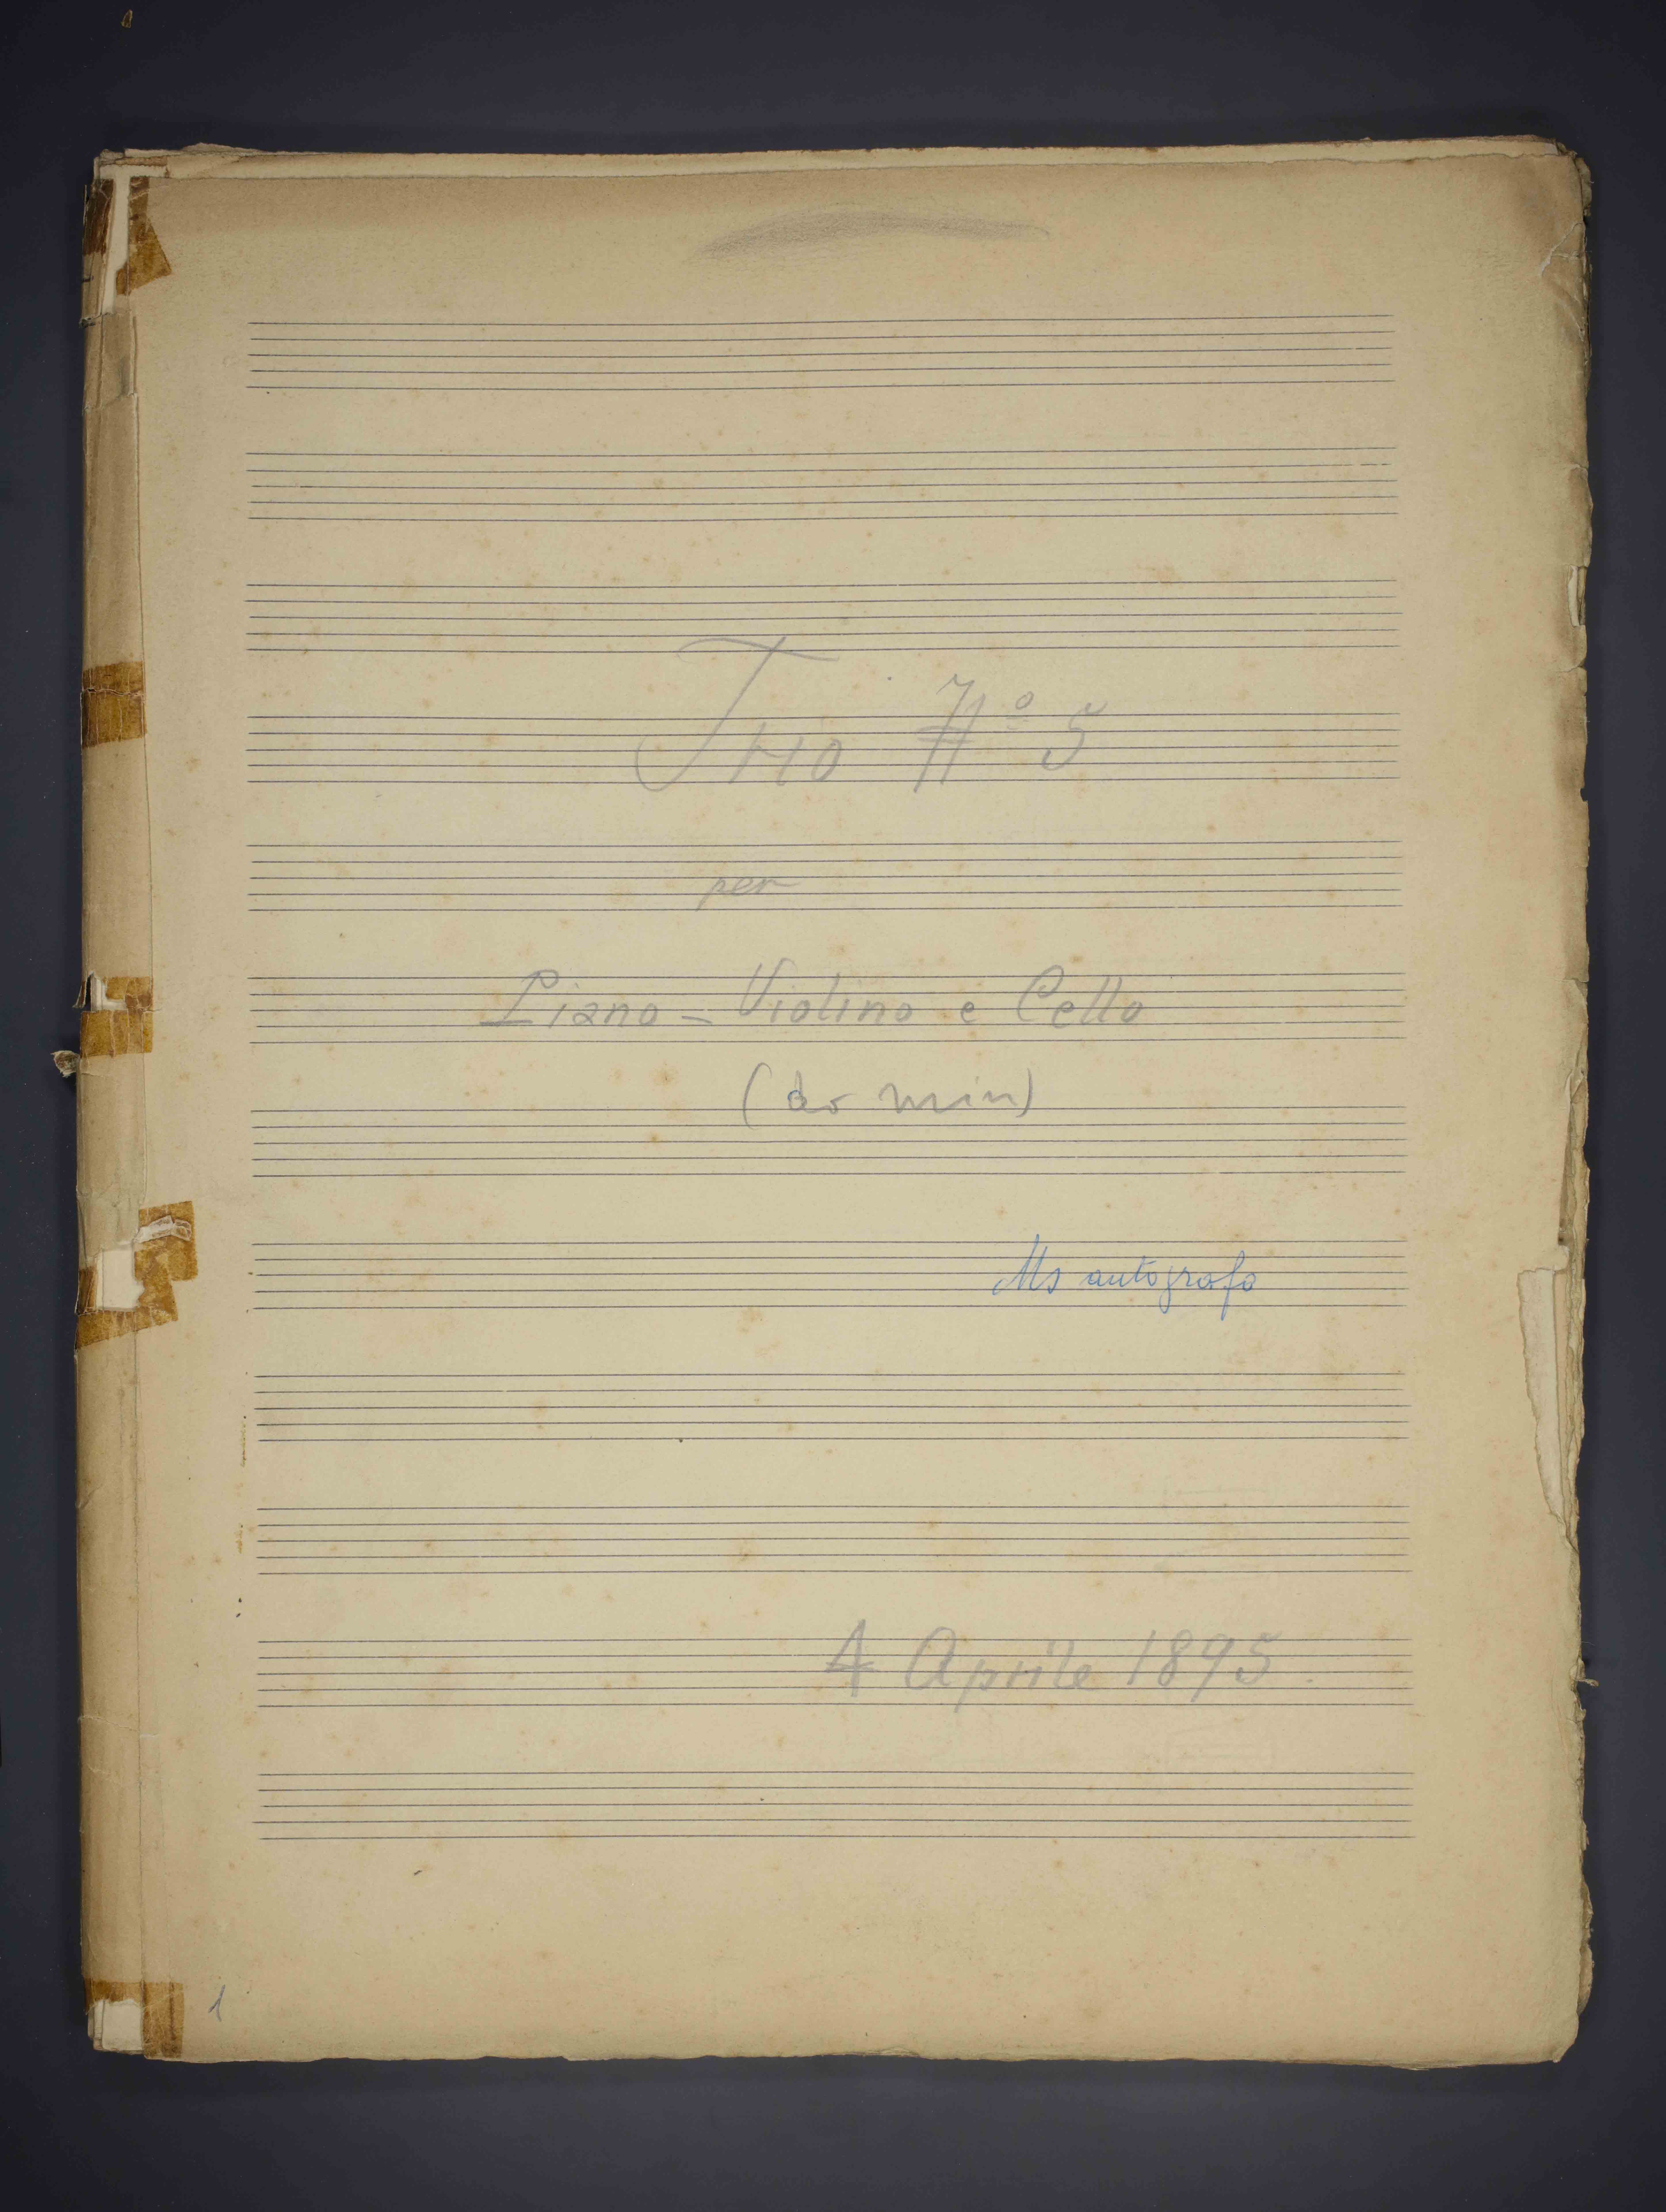 Trio Nº 5
per
Piano - Violino e Cello
(do min)
Ms autografo
4 Aprile 1895
1